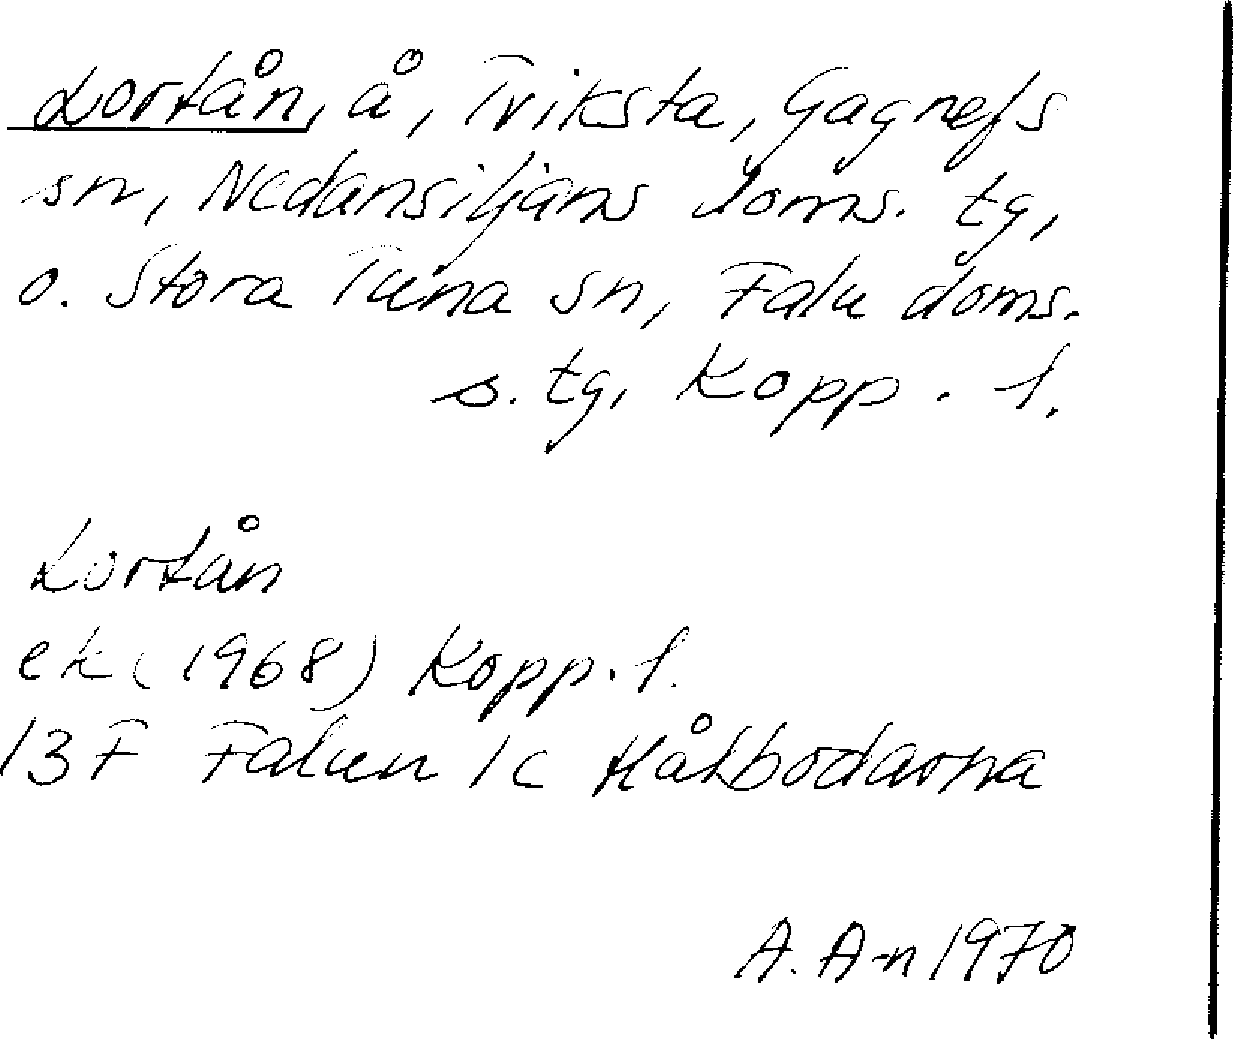 Lortån, å, Tviksta, Gagnefs
sn, Nedansiljans doms. tg,
o. Stora Tuna sn, Falu doms.
s. tg, Kopp. l.
Lortån
ek (1968) Kopp. l.
13F Falun 1c Kålbodarna
A. A-n 1970